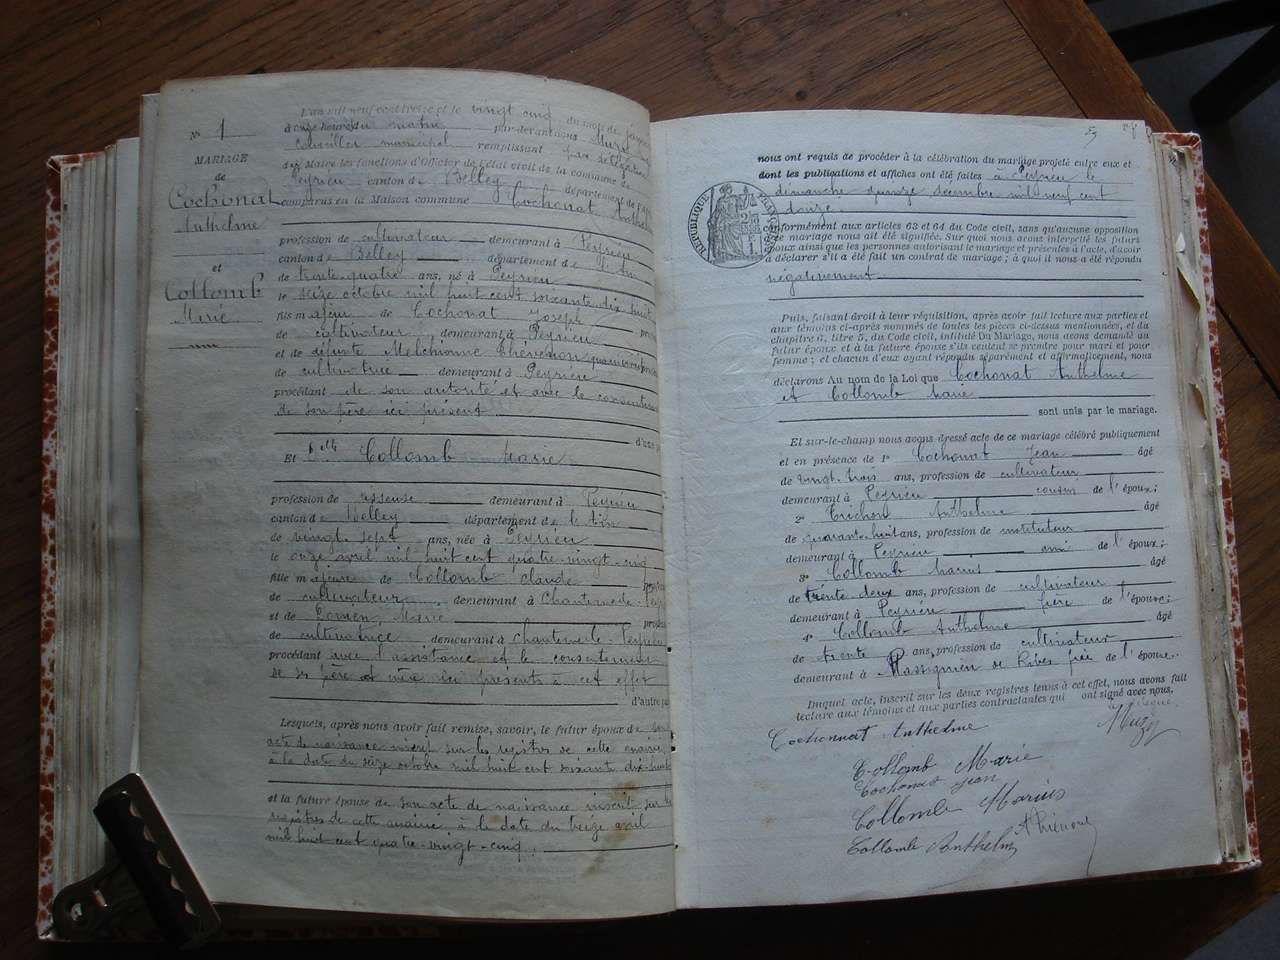 N° 1
MARIAGE
de
Cochonat
Anthelme
et
Collomb
Marie
L'an mil neuf cent treize et le vingt cinq du mois de
à onze heures du matin par-devant nous
conseiller municipal remplissant par délégation
du Maire les fonctions d'Officier de l'état civil de la commune de
Peyrieu canton de Belley département de l'Ain
comparus en la Maison commune Cochonat Anthelme
profession de cultivateur demeurant à Peyrieu
canton de Belley département de l'Ain
de trente-quatre ans, né à Peyrieu
le seize octobre mil huit cent soixante dix huit
fils majeur de Cochonat Joseph
de cultivateur demeurant à Peyrieu
et de défunte Melchionne
de cultivatrice demeurant à Peyrieu
procédant de son autorité et avec le consentement
de son père ici present
d'une
Et Collomb Marie
profession de demeurant à Peyrieu
canton de Belley département de l'Ain
de vingt sept ans, née à Peyrieu
le onze avril mil huit cent quatre-vingt-cinq
fille majeure de Collomb Claude
de cultivateur demeurant à Chantemerle-
et de Marie
de cultivatrice demeurant à Chantemerle-Peyrieu
procédant avec l'assistance et le consentement
de ses père et mère ici présents à cet effet
d'autre
Lesquels, après nous avoir fait remise, savoir, le futur époux de son
acte de naissance inscrit sur les registres de cette mairie
à la date du seize octobre mil huit cent soixante dix-huit
et la future épouse de son acte de naissance inscrit sur les
registres de cette mairie à la date du treize avril
mil huit cent quatre-vingt-cinq.
nous ont requis de procéder à la célébration du mariage projeté entre eux et
dont les publications et affiches ont été faites à Peyrieu le
dimanche quinze décembre mil neuf cent
douze.
RÉPUBLIQUE FRANÇAISE
conformément aux articles 63 et 64 du Code civil, sans qu'aucune opposition
à ce mariage nous ait été signifiée. Sur quoi nous avons interpellé les futurs
époux ainsi que les personnes autorisant le mariage et présentes à l'acte, d'avoir
à déclarer s'il a été fait un contrat de mariage ; à quoi il nous a été répondu
négativement
Puis, faisant droit à leur réquisition, après avoir fait lecture aux parties et
aux témoins ci-après nommés de toutes les pièces ci-dessus mentionnées, et du
chapitre 6, titre 5, du Code civil, intitulé Du Mariage, nous avons demandé au
futur époux et à la future épouse s'ils veulent se prendre pour mari et pour
femme ; et chacun d'eux ayant répondu séparément et affirmativement, nous
déclarons Au nom de la Loi que Cochonat Anthelme
et Collomb Marie
sont unis par le mariage.
Et sur-le-champ nous avons dressé acte de ce mariage célébré publiquement
et en présence de 1° Cochonat Jean âgé
de vingt-trois ans, profession de cultivateur
demeurant à Peyrieu cousin de l'époux ;
2° Anthelme âgé
de quarante-huit ans, profession de instituteur
demeurant à Peyrieu ami de l'époux ;
3° Collomb Marius âgé
de trente deux ans, profession de cultivateur
demeurant à Peyrieu frère de l'épouse ;
4° Collomb Anthelme âgé
de trente ans, profession de cultivateur
demeurant à Massignieu de Rives frère de l'épouse.
Duquel acte, inscrit sur les deux registres tenus à cet effet, nous avons fait
lecture aux témoins et aux parties contractantes qui ont signé avec nous.
Cochonnat Anthelme
Collomb Marie
Cochonat Jean
Collomb Marius
Collomb Anthelm